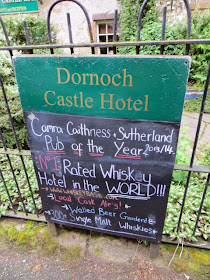 Dornoch
Castle Hotel
Camra Caithness & Sutherland
Pub of the Year 2013/14
Nº1 Rated Whiskey
Hotel in the WORLD!!!
Local Cask Ale's!
Walled Beer Garden!
Single Malt Whiskies